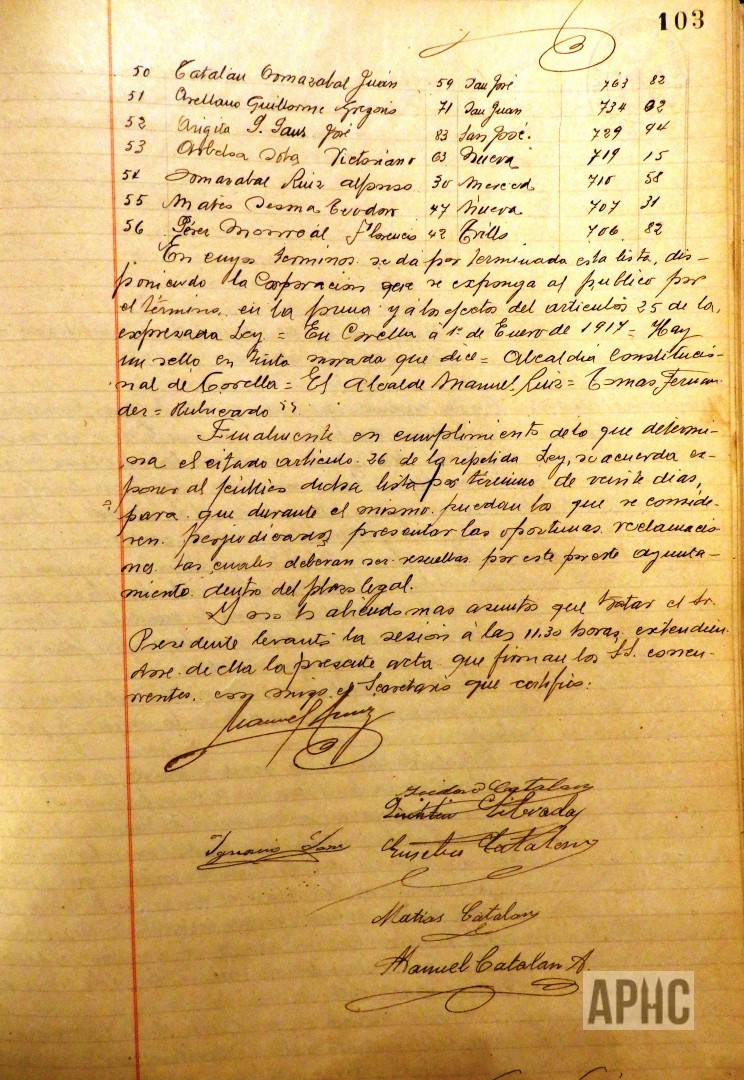 103
50 Catalán Tomazabal Juán 59 San José 763 82
51 Arellano Guillorme Gregorio 71 San Juan 734 02
52 Arigita S. Saus José 83 San José. 729 94
53 Arbeloa Victoriano 63 Nueva 719 15
54 Tomazabal Ruiz Alfonso 30 Merced 710 58
55 Mateo Sesma Teodoro 47 Nueva 707 31
56 Pérez Monreál Florencio 42 Trillo 706 82
En cuyos terminos se da por terminada esta lista, dis-
poniendo la Corporacion que se exponga al publico por
el término, en la forma y á los efectos del articulos 25 de la,
expresada Ley = En Corella á 1º de Enero de 1917 = Hay
un sello en tinta morada que dice = Alcaldía Constitucio-
nal de Corella = El Alcalde Manuel Ruiz = Tomas Fernan-
dez = Rubricado "
Finalmente en cumplimiento de lo que determi-
na el citado articulo 26 de la repetida Ley, se acuerda ex-
poner al público dicha lista por término de veinte dias,
para que durante el mismo puedan los que se conside-
ren perjudicados presentar las oportunas reclamacio-
nes las cuales deberan ser resueltas por este ayunta-
miento dentro del plazo legal.
Y no habiendo mas asuntos que tratar el Sr.
Presidente levantó la sesion á las 11,30 horas, extendien-
dose de ella la presente acta que firman los S.S. concu-
rrentes, con migo el Secretario que certifico.
Manuel Ruiz
Isidoro Catalan
Ignacio Eusebio Catalan
Matias Catalan
Manuel Catalan A.
APHC